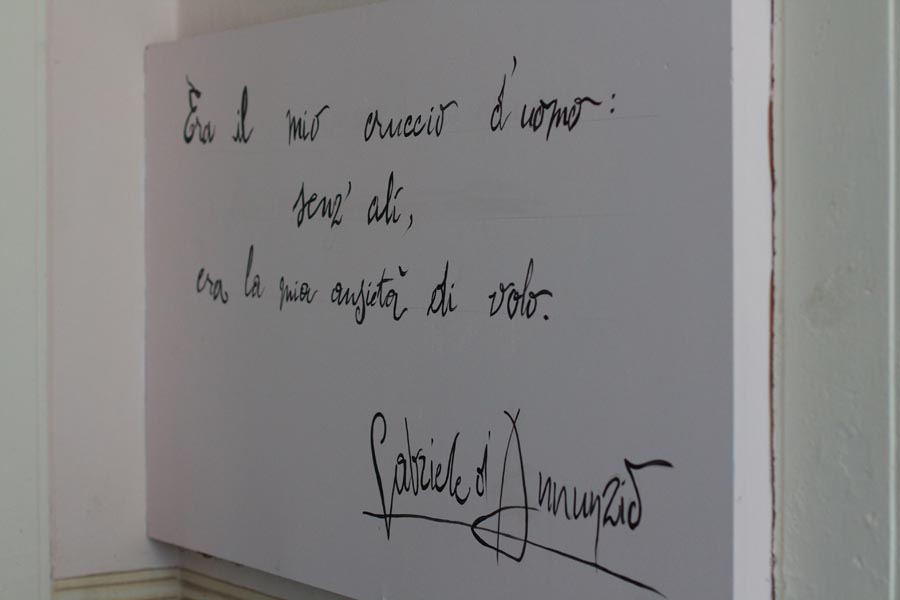 Era il mio cruccio d'uomo:
senz' ali,
era la mia ansietà di volo.
Gabriele d'Annunzio